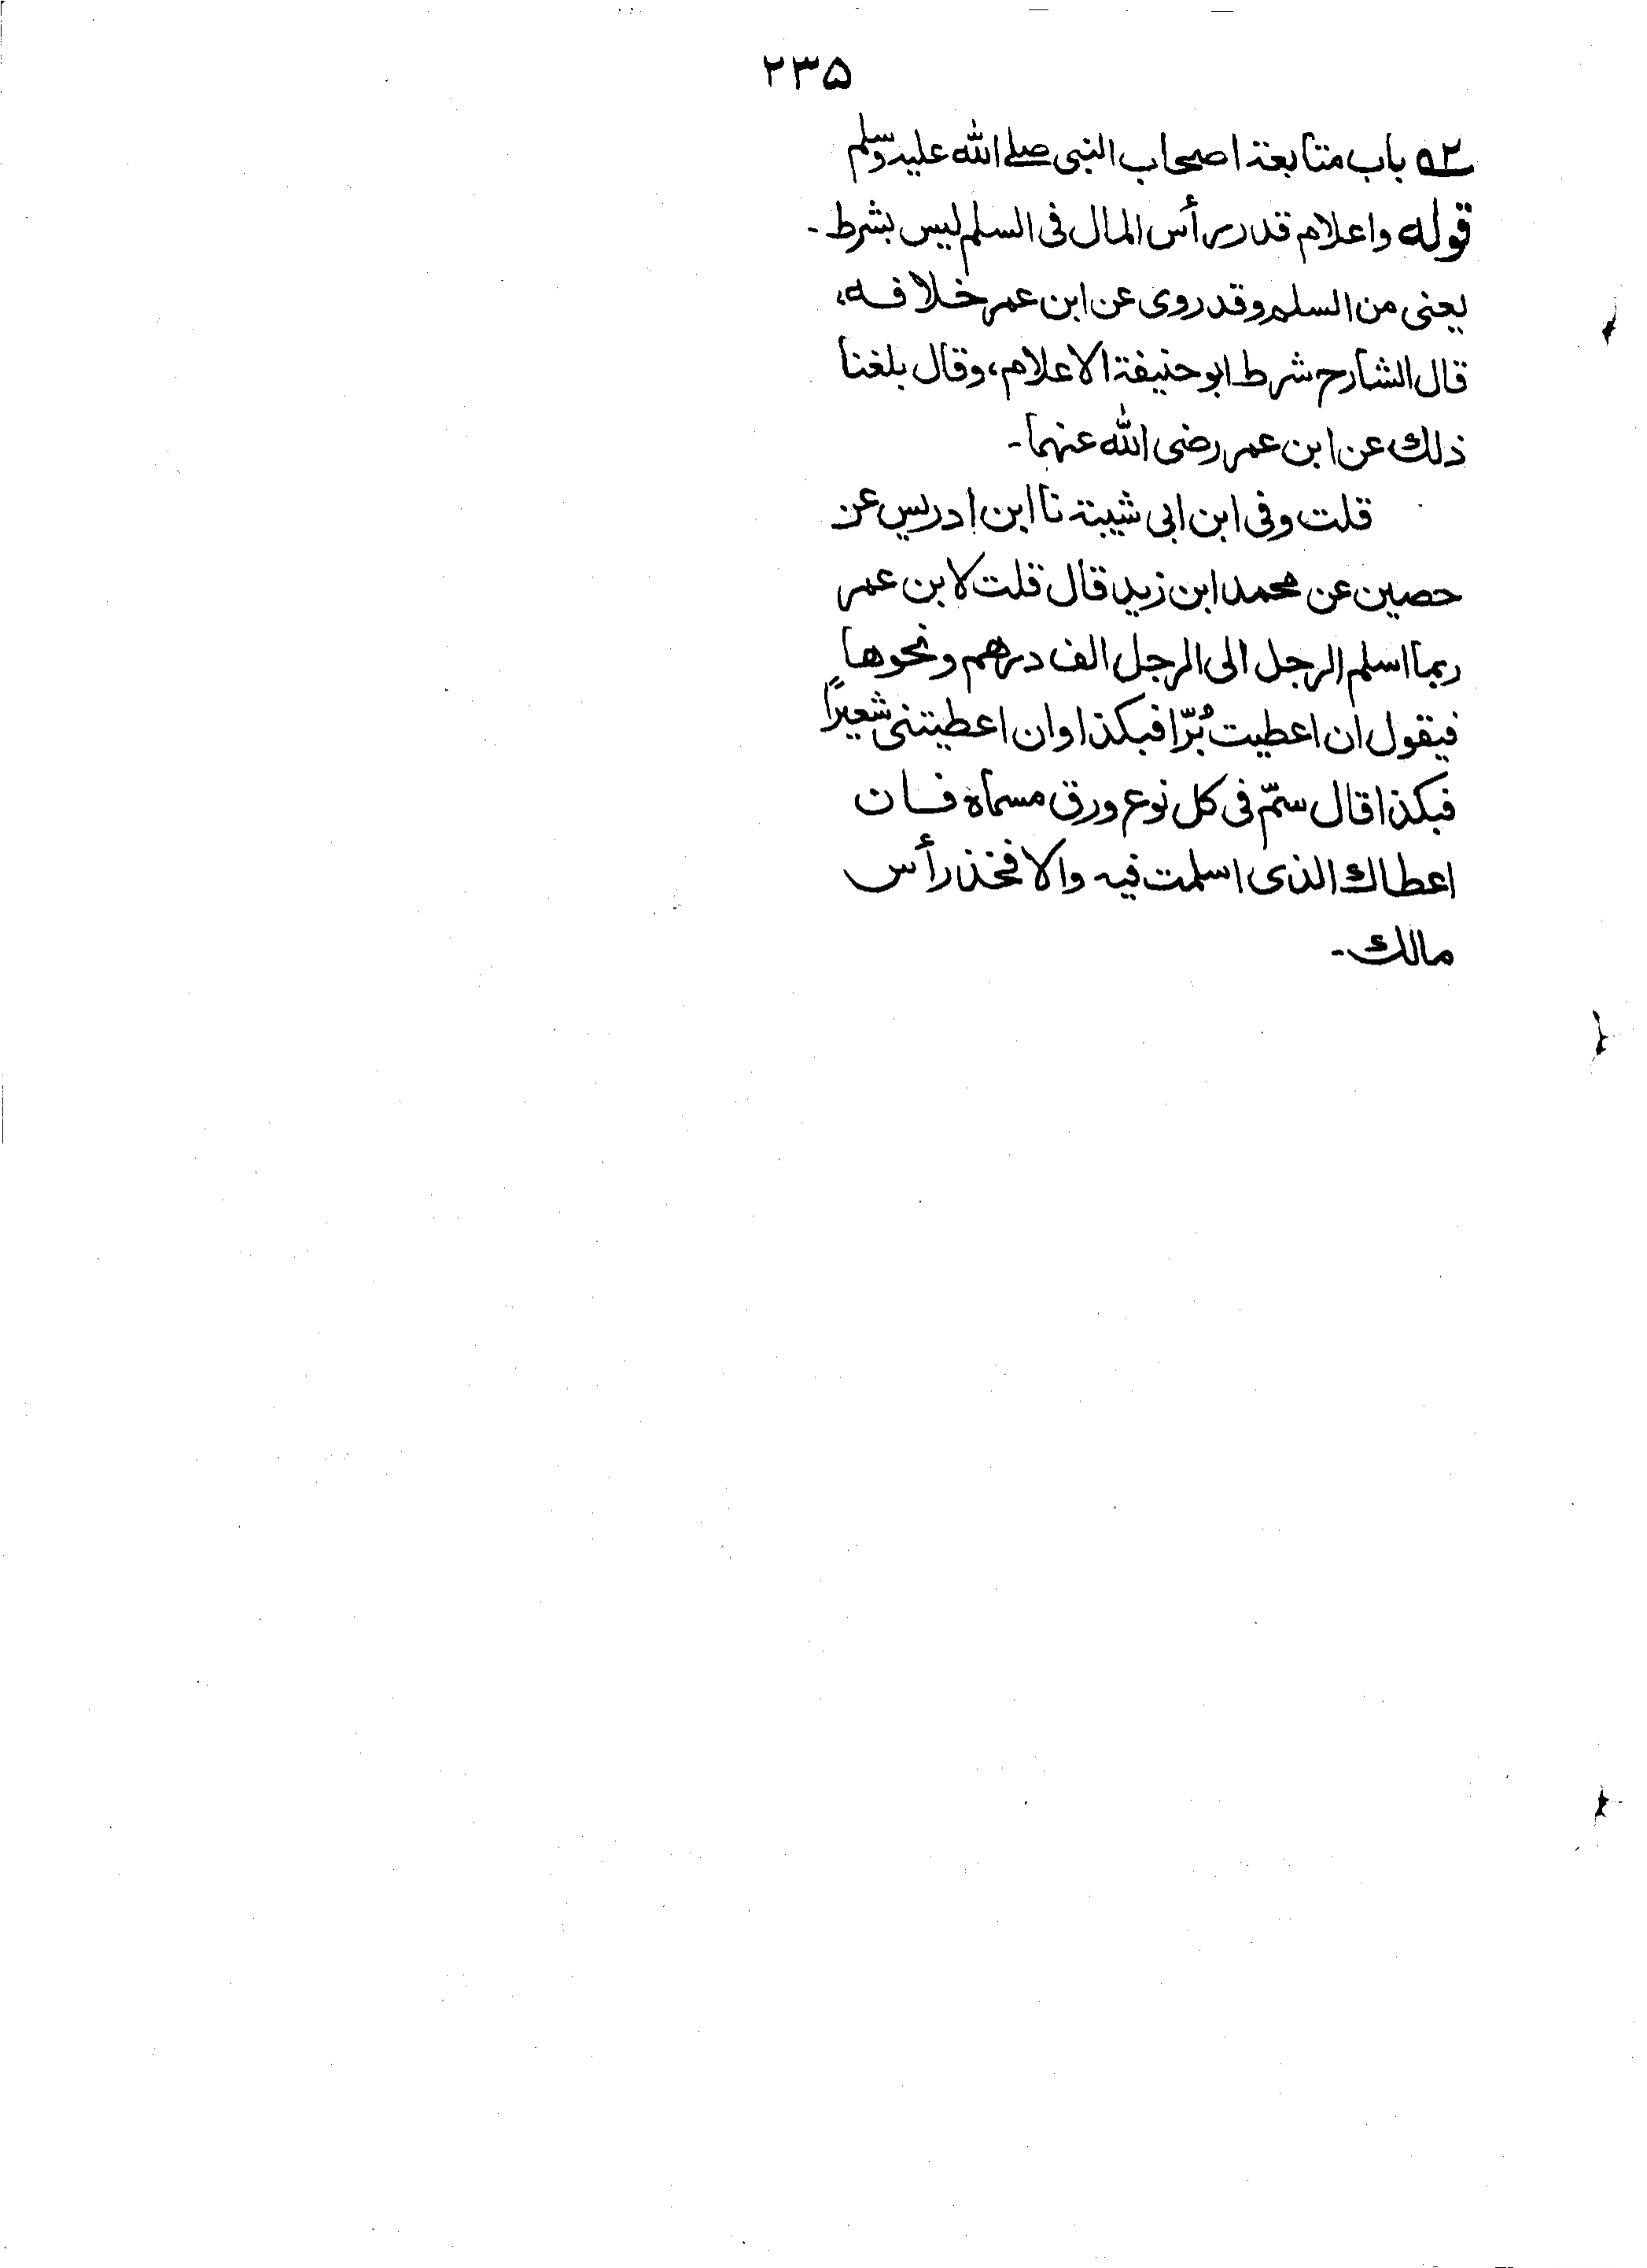 ۲۳۵
۵۲ باب متابعة اصحاب النبی صلے الله علیه وسلم
قوله واعلام قدر رأس المال فی السلم لیس بشرط -
یعنی من السلم وقد روی عن ابن عمر خلافه،
قال الشارح شرط ابو حنیفة الاعلام، وقال بلغنا
ذلك عن ابن عمر رضی الله عنهما -
قلت وفی ابن ابی شیبة نا ابن ادریس عن
حصین عن محمد ابن زید قال قلت لابن عمر
ربما اسلم الرجل الی الرجل الف درهم ونحوها
فیقول ان اعطیت بُرّا فبکذا وان اعطیتنی شعیرًا
فبکذا قال سمّ فی کل نوع ورق مسماة فان
اعطاك الذی اسلمت فیه والا فخذ رأس
مالك -